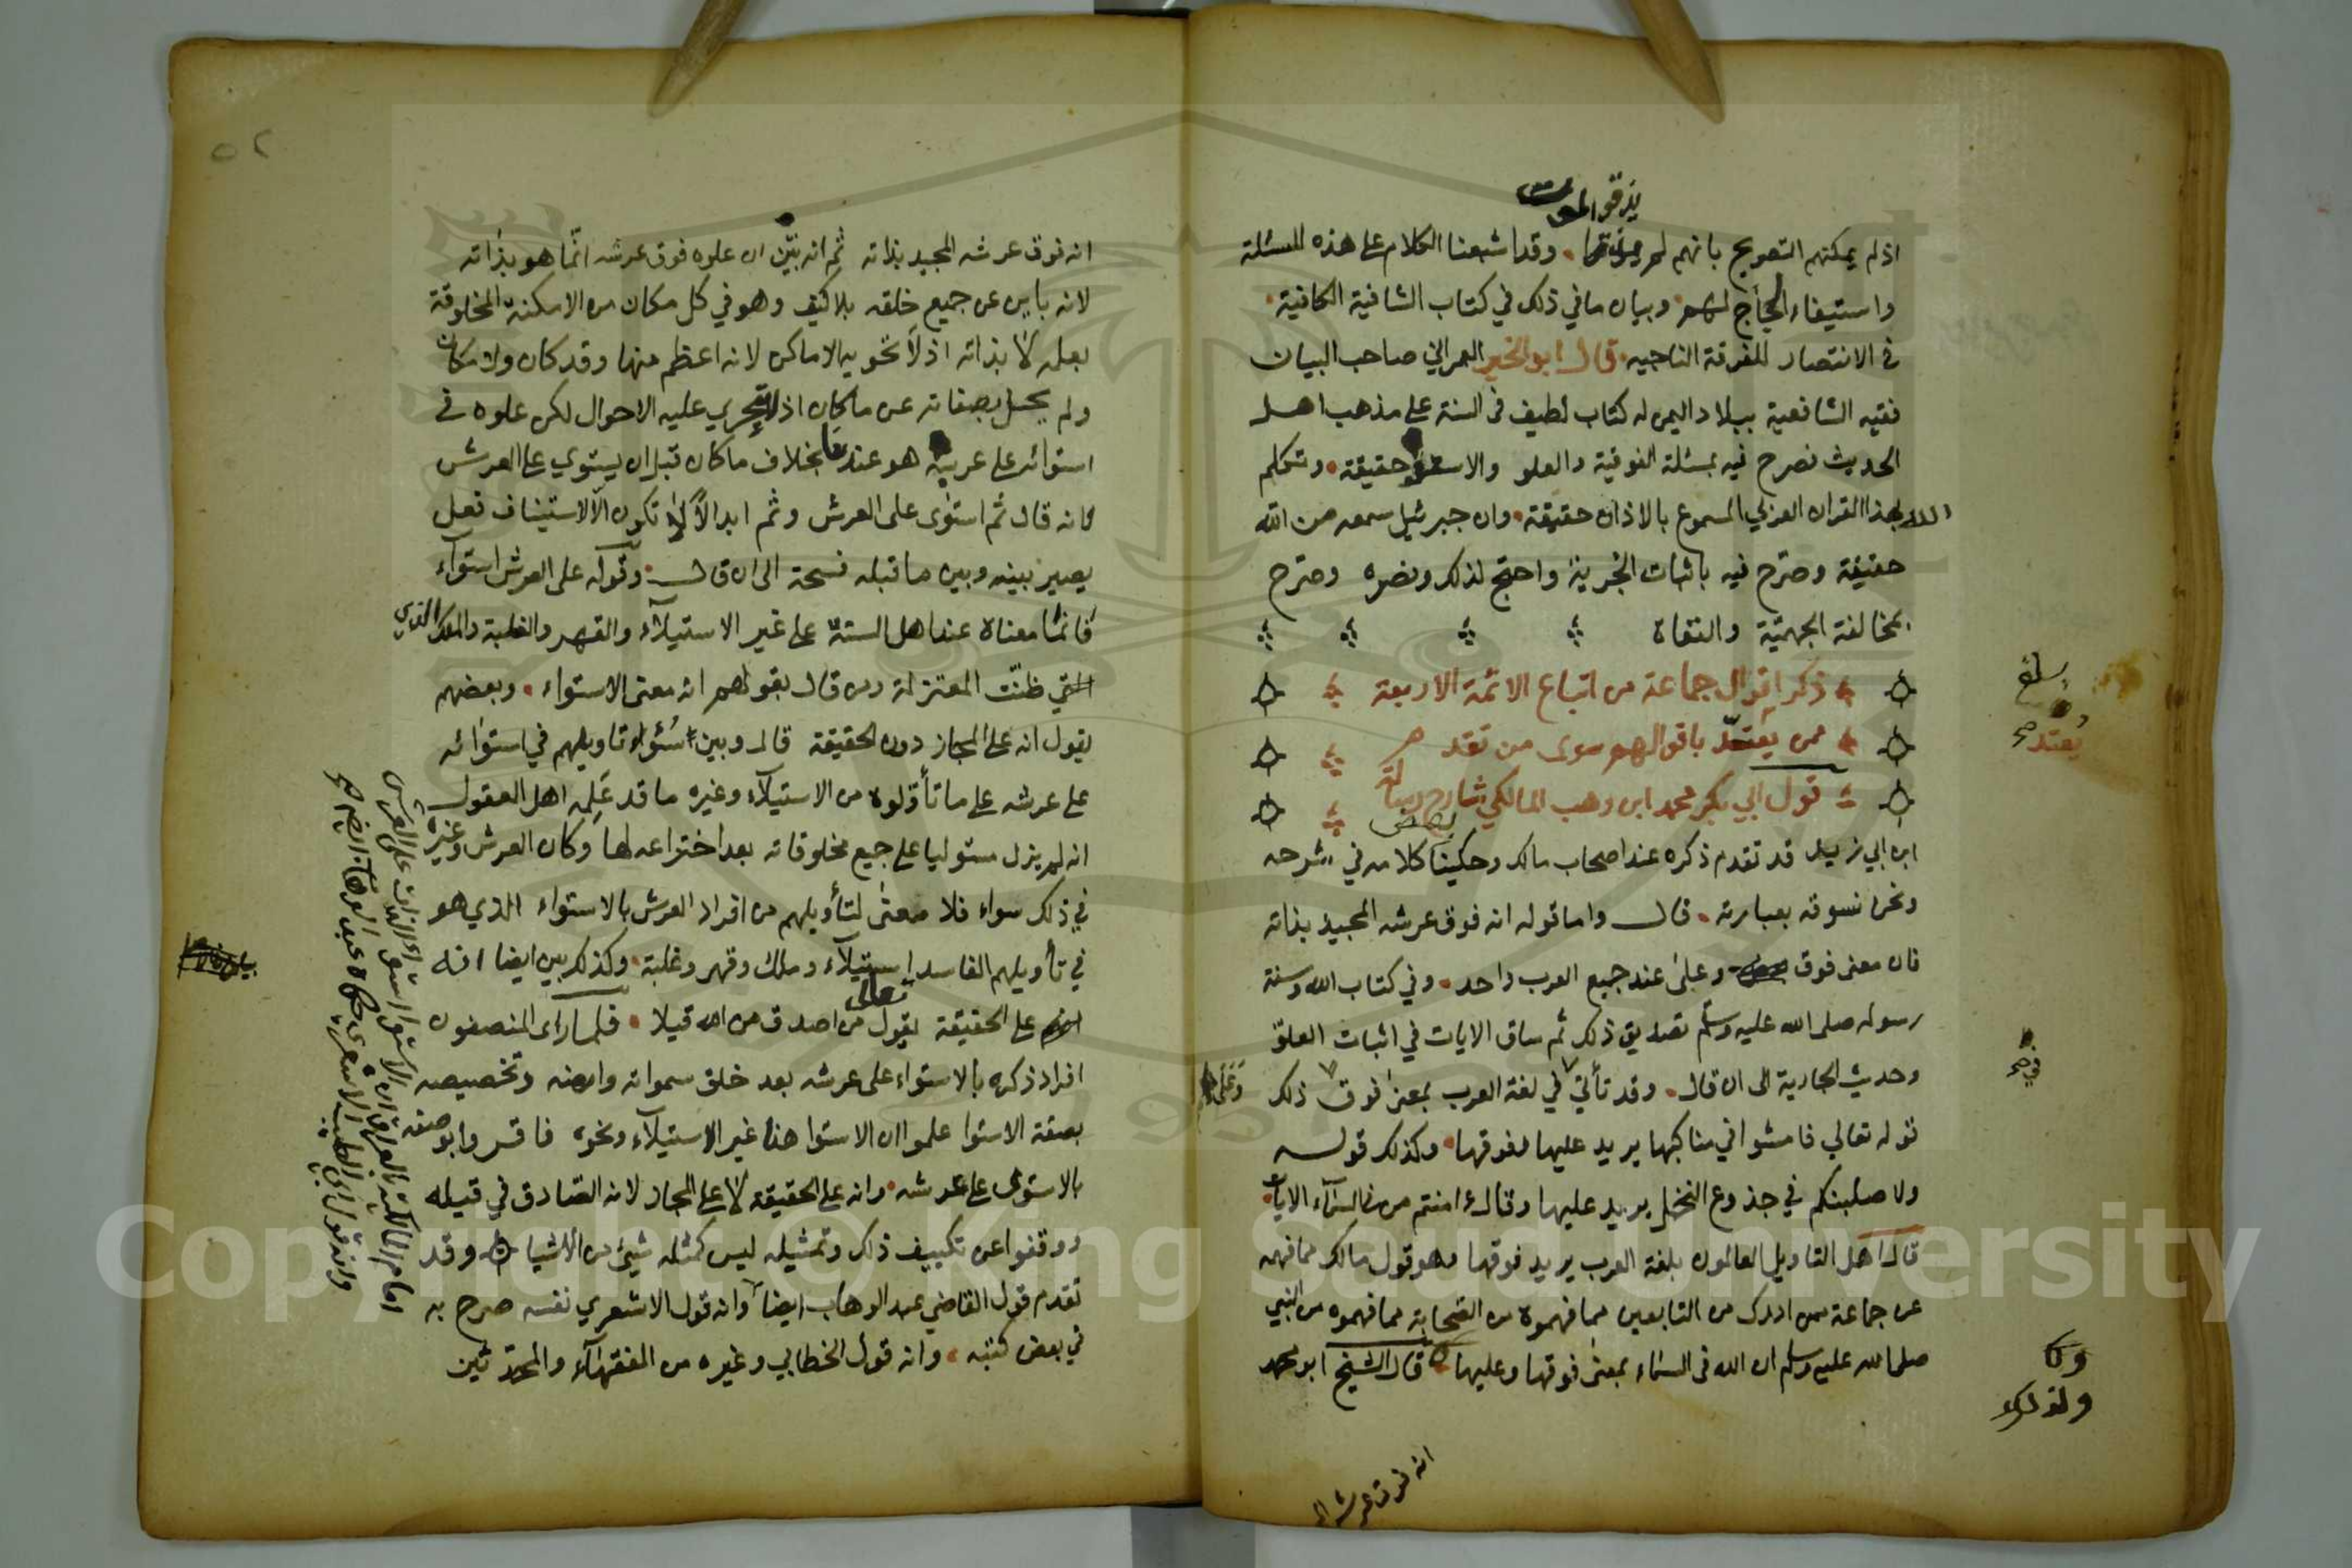 يذوقوا الموت
اذ لم يمكنهم التصريح بانهم لم . وقد اشبعنا الكلام على هذه المسئلة
واستيفاء الحجاج لهم وبيان ما في ذلك في كتاب الشافية الكافية
في الانتصار للفرقة الناجيه قال ابو الخير العمراني صاحب البيان
فقيه الشافعية ببلاد اليمن له كتاب لطيف في السنة على مذهب اهل
الحديث فصرح فيه بمسئلة الفوقية والعلو والاستواء حقيقة وتكلم
الله بهذا القران العربي المسموع بالاذان حقيقة وان جبرئيل سمعه من الله
حقيقة وصرح فيه باثبات الخبرية واحتج لذلك ونصره وصرح
بمخالفة الجهمية والنفاة
ذكر اقوال جماعة من اتباع الائمة الاربعة
ممن يعتد باقوالهم سوى من تقدم
يعتد صح
قول ابي بكر محمد ابن وهب المالكي شارح رسالة
ابن ابي زيد قد تقدم ذكره عند اصحاب مالك وحكينا بعض كلامه في شرحه
ونحن نسوقه بعبارته . قال واما قوله انه فوق عرشه المجيد بذاته
فان معنى فوق وعلى عند جميع العرب واحد . وفي كتاب الله وسنة
رسوله صلى الله عليه وسلم تصديق ذلك ثم ساق الايات في اثبات العلو
وحديث الجارية الى ان قال . وقد تأتي في لغة العرب بمعنى فوق ذلك
في صح
قوله تعالي فامشوا في مناكبها يريد عليها وفوقها وكذلك قوله
ولاصلبنكم في جذوع النخل يريد عليها وقال ءامنتم من في السماء الايات
قال اهل التاويل العالمون بلغة العرب يريد فوقها وهو قول مالك مما فهمه
عن جماعة ممن ادرك من التابعين مما فهموه من الصحابة مما فهموه من النبي
صلى الله عليه وسلم ان الله في السماء بمعنى فوقها وعليها قال الشيخ ابو محمد
ولذلك
انه فوق عرشه ا
٥٢
انه فوق عرشه المجيد بذاته ثم انه بين ان علوه فوق عرشه انما هو بذاته
لانه باين عن جميع خلقه بلا كيف وهو في كل مكان من الامكنة المخلوقة
بعلمه لا بذاته اذ لا تحويه الاماكن لانه اعظم منها وقد كان ولا مكان
ولم يحل بصفاته عن ما كان اذ لا تجري عليه الاحوال لكن علوه في
استوائه على عرشه هو عندنا بخلاف ما كان قبل ان يستوي على العرش
لانه قال ثم استوى على العرش وثم ابدا لا تكون الا لاستيناف فعل
يصير بينه وبين ما قبله فسحة الى ان قال . وقوله على العرش استوآء
فانما معناه عند اهل السنة على غير الاستيلآء والقهر والغلبة والملك الذي
ظنت المعتزلة ومن قال بقولهم انه معنى الاستواء . وبعضهم
يقول انه على المجاز دون الحقيقة قال وبين سوء تاويلهم في استوائه
على عرشه على ما تأولوه من الاستيلآء وغيره ما قد علمه اهل العقول
انه لم يزل مستوليا على جميع مخلوقاته بعد اختراعه لها وكان العرش وغيره
في ذلك سواء فلا معنى لتأويلهم من افراد العرش بالاستواء الذي هو
في تأويلهم الفاسد استيلآء وملك وقهر وغلبة . وكذلك بين ايضا انه
على الحقيقة بقوله تعالى من اصدق من الله قيلا . فلما راى المنصفون
افراد ذكره بالاستواء على عرشه بعد خلق سمواته وارضه وتخصيصه
بصفة الاستوا علموا ان الاستوا هنا غير الاستيلآء ونحوه فاقروا بوصفه
بالاستوى على عرشه وانه على الحقيقة لا على المجاز لانه الصادق في قيله
ووقفوا عن تكييف ذلك وتمثيله ليس كمثله شيئ من الاشيا وقد
تقدم قول القاضي عبد الوهاب ايضا وانه قول الاشعري نفسه صرح به
في بعض كتبه ، وانه قول الخطابي وغيره من الفقهآء والمحدثين
امام المالكية بالعراق ان الاستوا استواء الذات على العرش
وانه قول ابي الطيب الاشعري حكاه عبد الوهاب